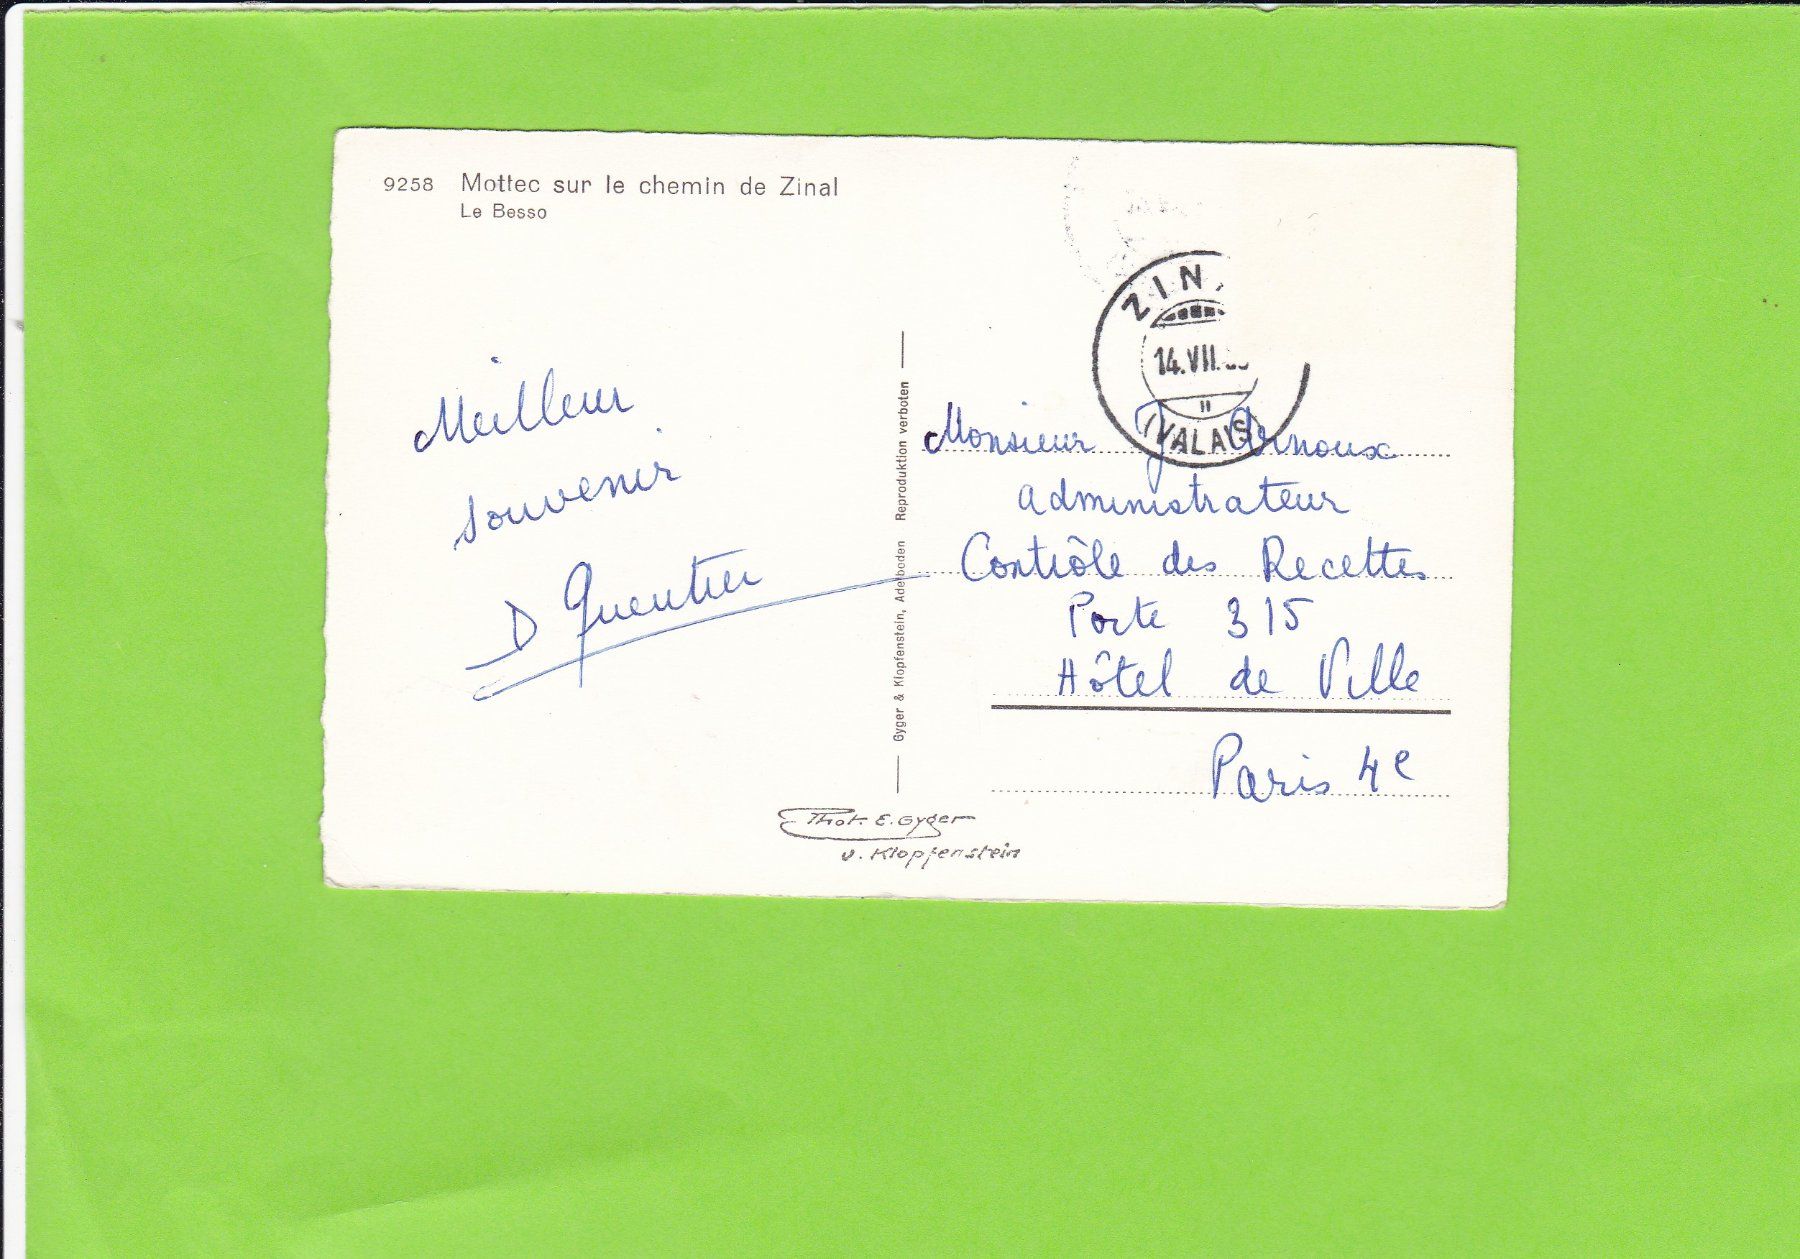 9258 Mottec sur le chemin de Zinal
Le Besso
Meilleur
souvenir
D Quentin
Gyger & Klopfenstein, Adelboden Reproduktion verboten
Phot. E. Gyger
u. Klopfenstein
ZIN
14.VII.
(VALAIS)
Monsieur J. Arnoux
administrateur
Contrôle des Recettes
Porte 315
Hôtel de Ville
Paris 4e